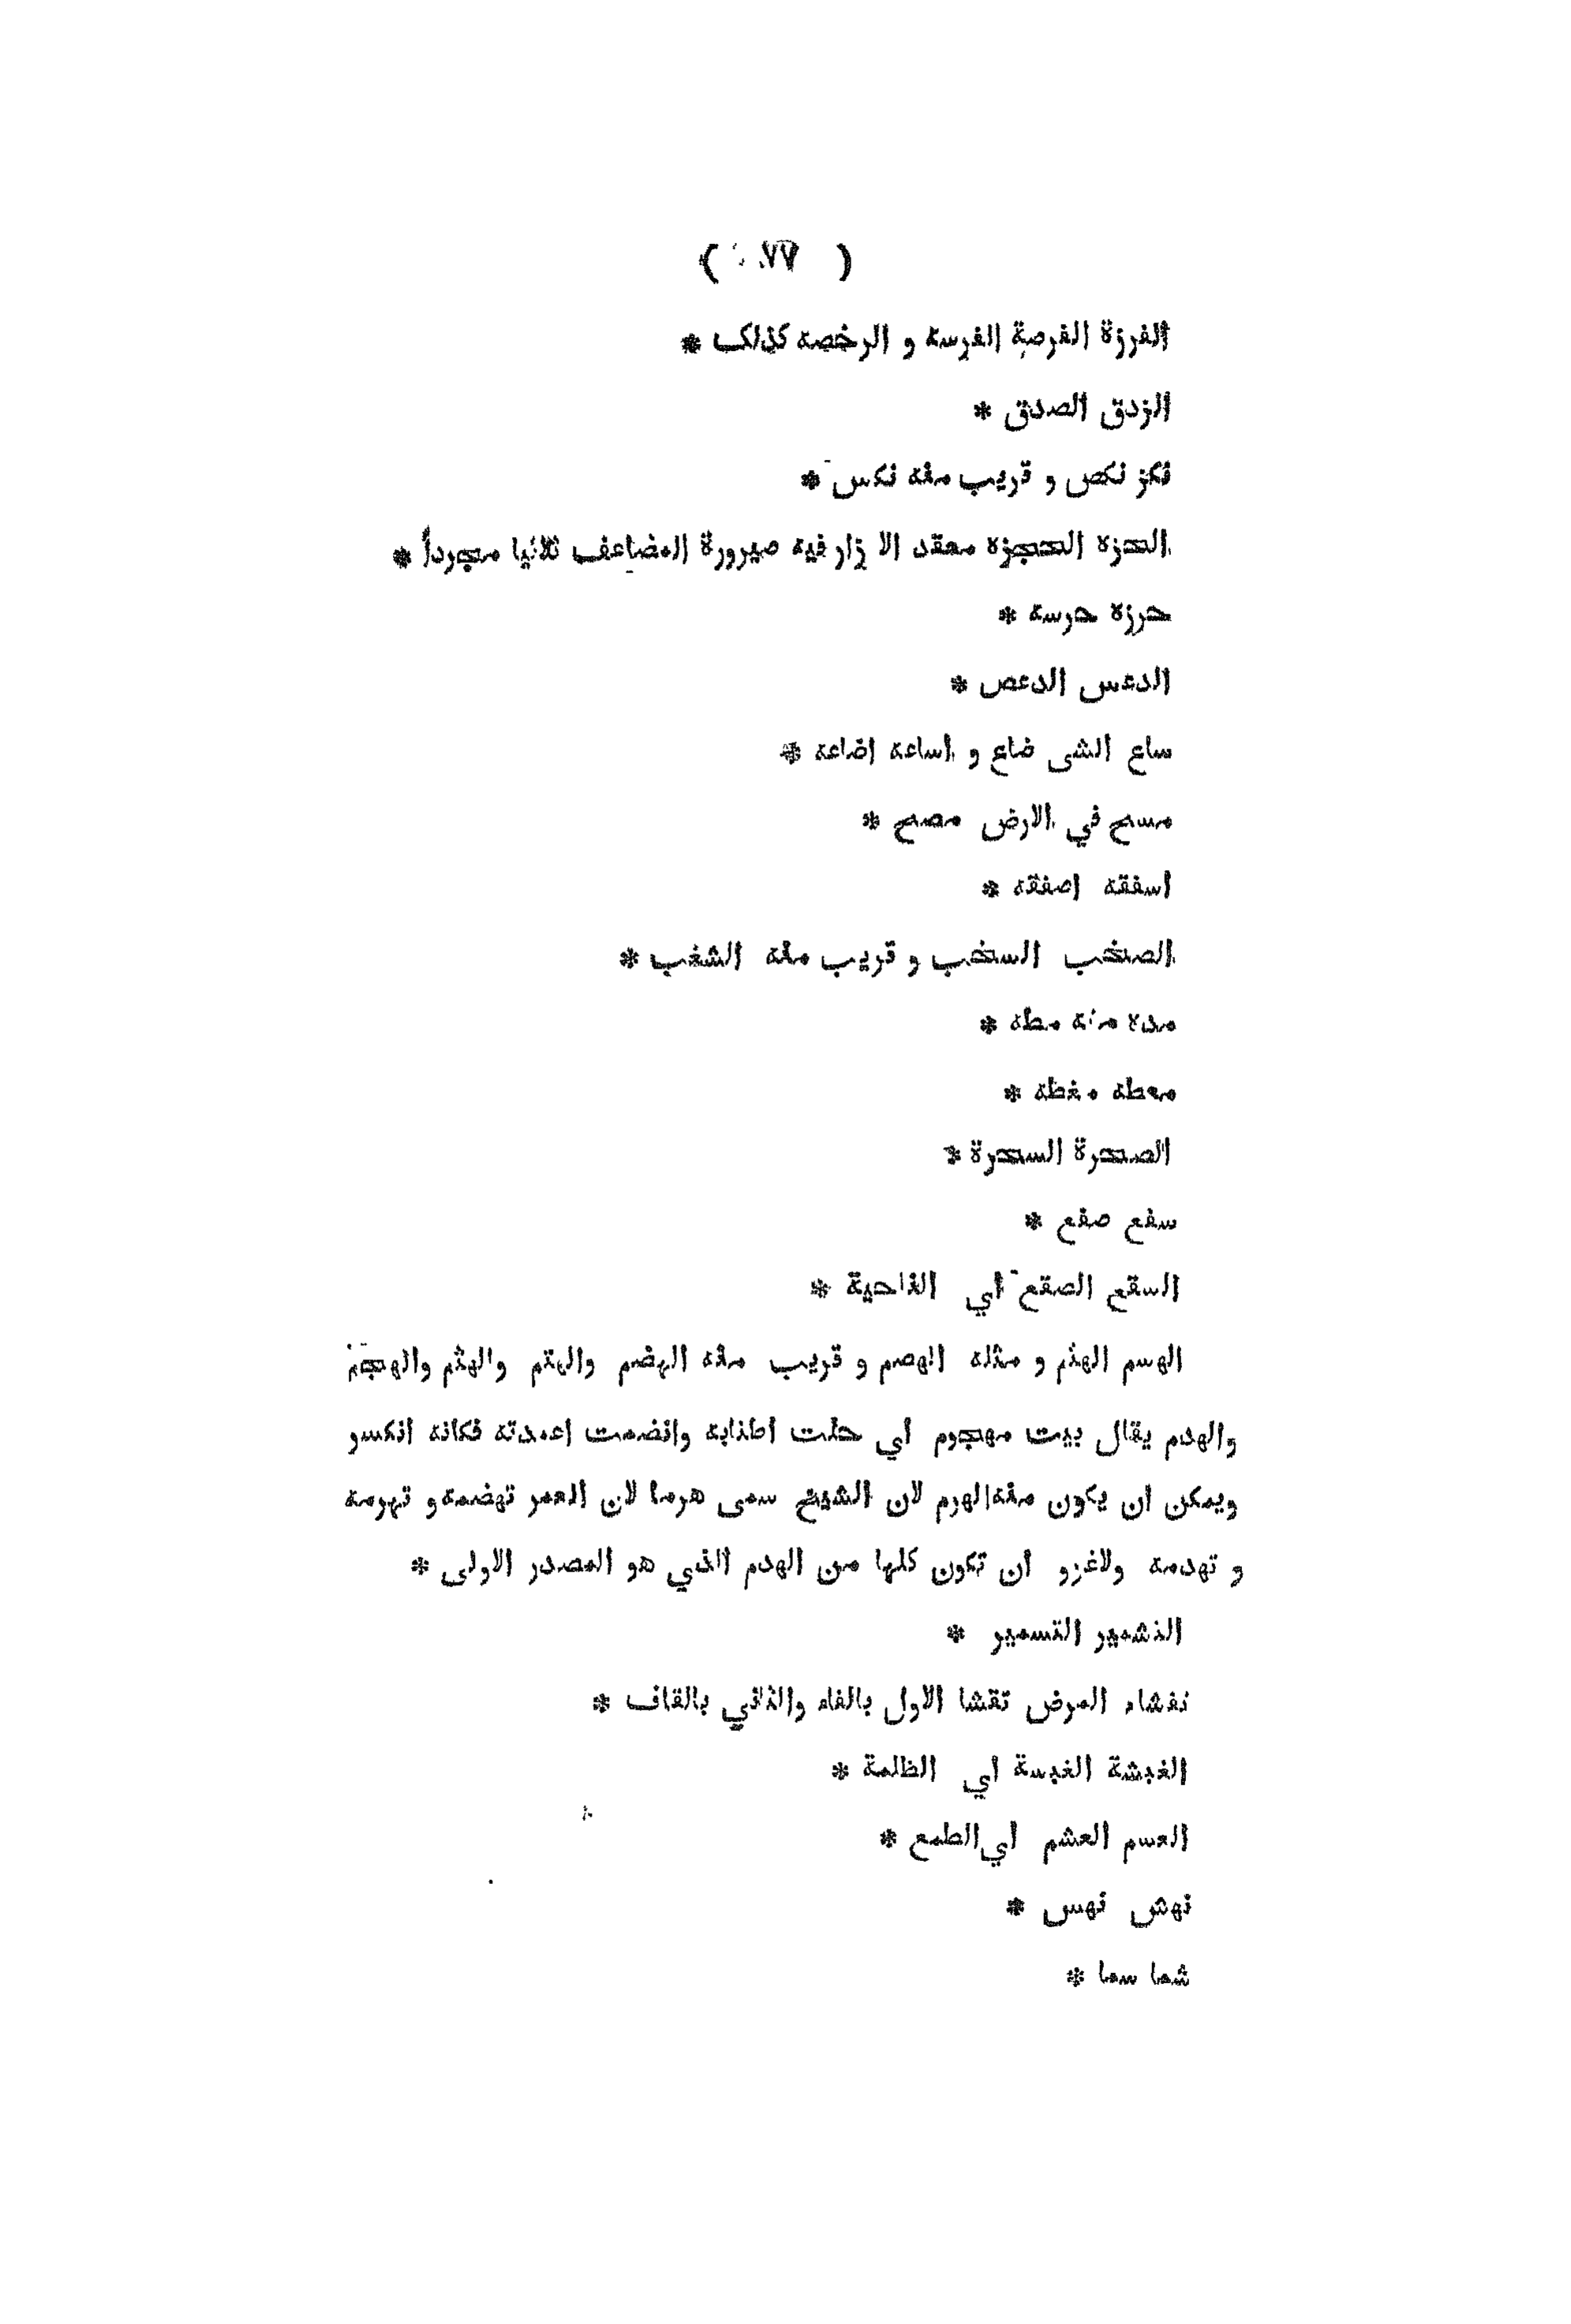 ( ٧٧ )
الفرزة الفرصة الفرسة و الرخصه كذلك *
الزدق الصدق *
نكز نكص و قريب منه نكس *
الحزه الحجزه معقد الا زار فيه صيرورة المضاعف ثلاثيا مجرداً *
حرزه حرسه *
الدعس الدعص *
ساع الشى ضاع و أساعه اضاعه *
مسح في الارض مصح *
أسفقه اصفقه *
الصخب السخب و قريب منه الشغب *
مده مته مطه *
معطه مغطه *
الصحرة السحرة *
سفع صفع *
السقع الصقع أي الناحية *
الهسم الهذم و مثله الهصم و قريب منه الهضم والهتم والهثم والهجم
والهدم يقال بيت مهجوم أي حلت اطنابه وانضمت اعمدته فكانه انكسو
ويمكن ان يكون منه الهرم لان الشيخ سمى هرما لان العمر تهضمه و تهرمه
و تهدمه ولاغزو أن تكون كلها من الهدم الذي هو المصدر الاولى *
التشمير التسمير *
تفشاء المرض تقشا الاول بالفاء والثاني بالقاف *
الغبشة الغبسة أي الظلمة *
العسم العشم أي الطمع *
نهش نهس *
شما سما *